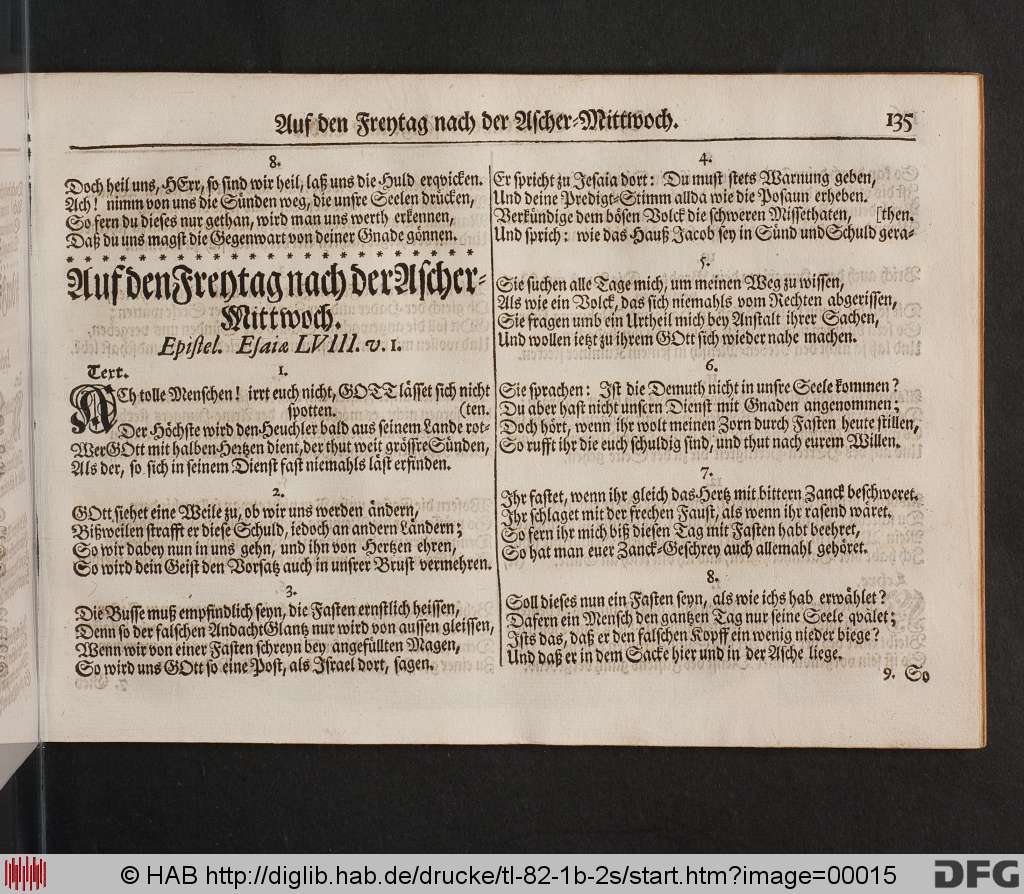 Auf den Freytag nach der Ascher-Mittwoch. 135
8.
Doch heil uns, HErr, so sind wir heil, laß uns die Huld erqvicken.
Ach! nimm von uns die Sünden weg, die unsre Seelen drücken,
So fern du dieses nur gethan, wird man uns werth erkennen,
Daß du uns magst die Gegenwart von deiner Gnade gönnen.
Auf den Freytag nach der Ascher-
Mittwoch.
Epistel. Esaiæ LVIII. v. 1.
Text. 1.
ACh tolle Menschen! irrt euch nicht, GOTT lässet sich nicht
spotten. (ten.
Der Höchste wird den Heuchler bald aus seinem Lande rot-
Wer GOtt mit halben Hertzen dient, der thut weit grössre Sünden,
Als der, so sich in seinem Dienst fast niemahls läst erfinden.
2.
GOtt siehet eine Weile zu, ob wir uns werden ändern,
Bißweilen strafft er diese Schuld, iedoch an andern Ländern;
So wir dabey nun in uns gehn, und ihn von Hertzen ehren,
So wird dein Geist den Vorsatz auch in unsrer Brust vermehren.
3.
Die Busse muß empfindlich seyn, die Fasten ernstlich heissen,
Denn so der falschen Andacht Glantz nur wird von aussen gleissen,
Wenn wir von einer Fasten schreyn bey angefüllten Magen,
So wird uns GOtt so eine Post, als Israel dort, sagen.
4.
Er spricht zu Jesaia dort: Du must stets Warnung geben,
Und deine Predigt-Stimm allda wie die Posaun erheben.
Verkündige dem bösen Volck die schweren Missethaten, [then.
Und sprich: wie das Hauß Jacob sey in Sünd und Schuld gera-
5.
Sie suchen alle Tage mich, um meinen Weg zu wissen,
Als wie ein Volck, das sich niemahls vom Rechten abgerissen,
Sie fragen umb ein Urtheil mich bey Anstalt ihrer Sachen,
Und wollen ietzt zu ihrem GOtt sich wieder nahe machen.
6.
Sie sprachen: Ist die Demuth nicht in unsre Seele kommen?
Du aber hast nicht unsern Dienst mit Gnaden angenommen;
Doch hört, wenn ihr wolt meinen Zorn durch Fasten heute stillen,
So rufft ihr die euch schuldig sind, und thut nach eurem Willen.
7.
Ihr fastet, wenn ihr gleich das Hertz mit bittern Zanck beschweret.
Ihr schlaget mit der frechen Faust, als wenn ihr rasend wäret.
So fern ihr mich biß diesen Tag mit Fasten habt beehret,
So hat man euer Zanck-Geschrey auch allemahl gehöret.
8.
Soll dieses nun ein Fasten seyn, als wie ichs hab erwählet?
Dafern ein Mensch den gantzen Tag nur seine Seele qvälet;
Ists das, daß er den falschen Kopff ein wenig nieder biege?
Und daß er in dem Sacke hier und in der Asche liege.
9. So
© HAB http://diglib.hab.de/drucke/tl-82-1b-2s/start.htm?image=00015
DFG